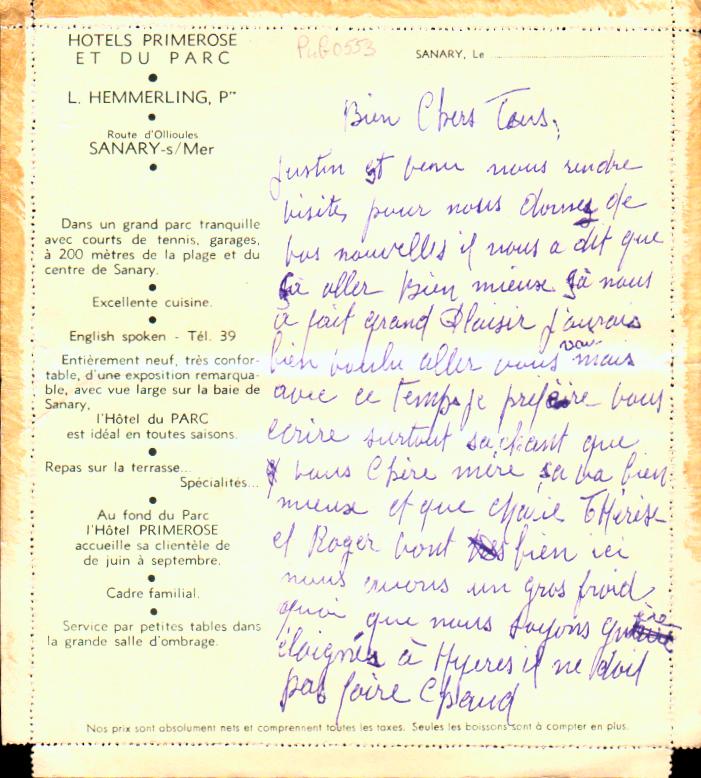 HOTELS PRIMEROSE
ET DU PARC
L. HEMMERLING, Pre
Route d'Ollioules
SANARY-s/Mer
Dans un grand parc tranquille
avec courts de tennis, garages,
à 200 mètres de la plage et du
centre de Sanary.
Excellente cuisine.
English spoken - Tél. 39
Entièrement neuf, très confor-
table, d'une exposition remarqua-
ble, avec vue large sur la baie de
Sanary,
l'Hôtel du PARC
est idéal en toutes saisons.
Repas sur la terrasse...
Spécialités...
Au fond du Parc
l'Hôtel PRIMEROSE
accueille sa clientèle de
de juin à septembre.
Cadre familial.
Service par petites tables dans
la grande salle d'ombrage.
PuG0553
SANARY, Le
Bien Chers Tous,
Justin et venu nous rendre
visite, pour nous donner de
vos nouvelles il nous a dit que
ça aller bien mieux ça nous
à fait grand Plaisir j'aurais
bien voulu aller vous voir mais
avec ce temps je préfère vous
écrire surtout sachant que
vous Chère mère sa va bien
mieux et que Marie Thérèse
et Roger vont bien ici
nous avons un gros froid
quoi que nous soyons guère
éloignés à Hyeres il ne doit
pas faire Chaud
Nos prix sont absolument nets et comprennent toutes les taxes. Seules les boissons sont à compter en plus.